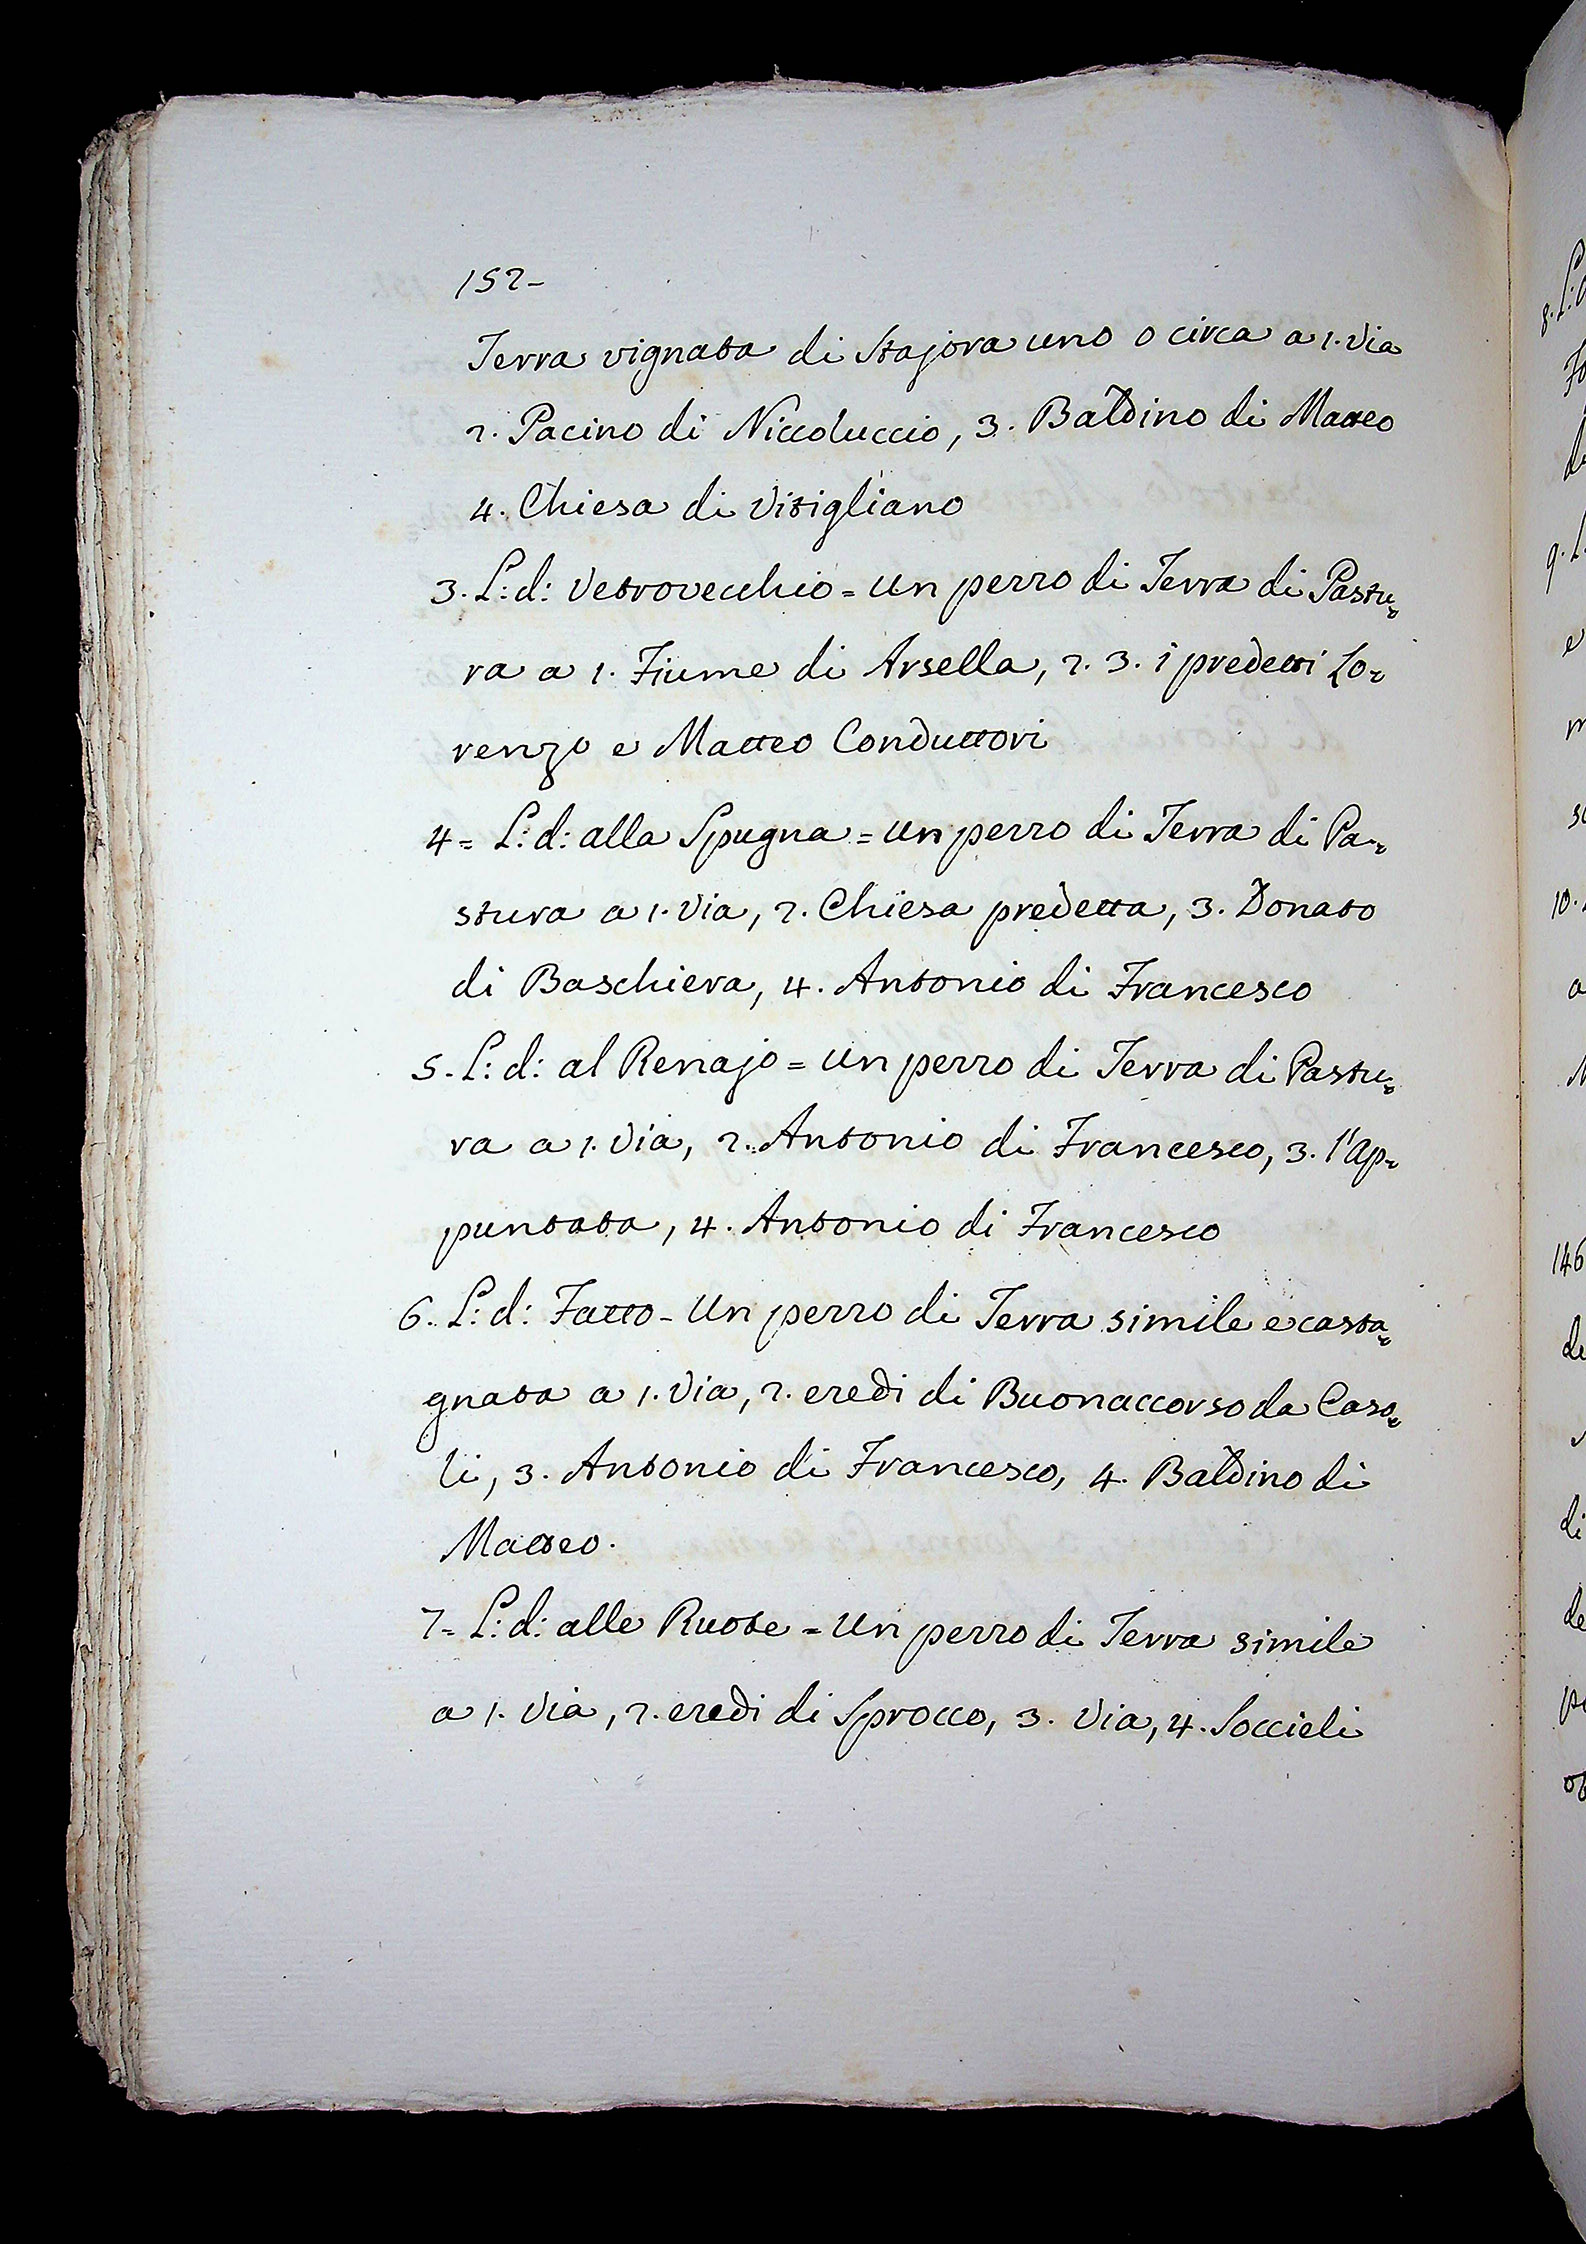 152-
Terra vignata di Stajora uno o circa a 1. Via
2. Pacino di Niccoluccio, 3. Baldino di Matteo
4. Chiesa di Vitigliano
3. L: d: Vetrovecchio = Un pezzo di Terra di Pastu=
ra a 1. Fiume di Arsella, 2. 3. i predetti Lo=
renzo e Matteo Conduttori
4= L: d: alla Spugna = Un pezzo di Terra di Pa=
stura a 1. Via, 2. Chiesa predetta, 3. Donato
di Baschiera, 4. Antonio di Francesco
5. L: d: al Renajo = Un pezzo di Terra di Pastu=
ra a 1. Via, 2. Antonio di Francesco, 3. l'ap=
puntata, 4. Antonio di Francesco
6. L: d: Fatto - Un pezzo di Terra simile e casta=
gnata a 1. Via, 2. eredi di Buonaccorso da Caso=
li, 3. Antonio di Francesco, 4. Baldino di
Matteo.
7= L: d: alle Ruote = Un pezzo di Terra simile
a 1. Via, 2. eredi di Sprocco, 3. Via, 4. Soccieli